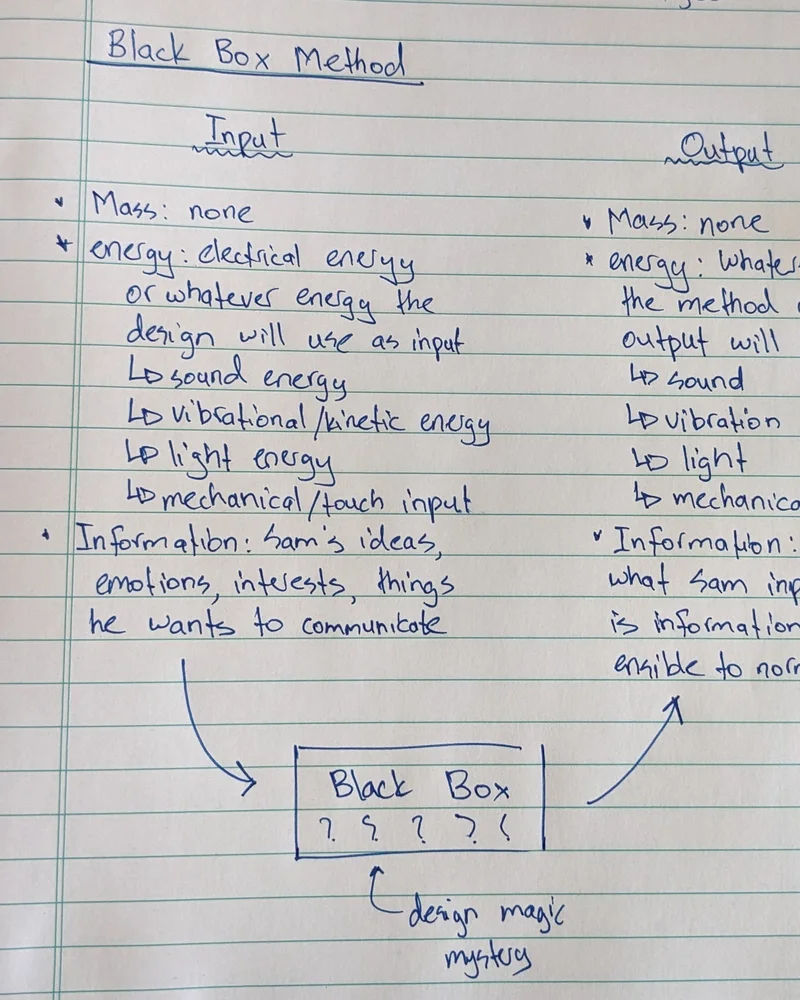 Black Box Method
Input
• Mass: none
* energy: electrical energy
or whatever energy the
design will use as input
↳ sound energy
↳ vibrational/kinetic energy
↳ light energy
↳ mechanical/touch input
• Information: Sam's ideas,
emotions, interests, things
he wants to communicate
Output
• Mass: none
* energy: whate
the method
output will
↳ sound
↳ vibration
↳ light
↳ mechanica
• Information:
what Sam inp
is information
ensible to nor
Black Box
? ? ? ? ?
design magic
mystery